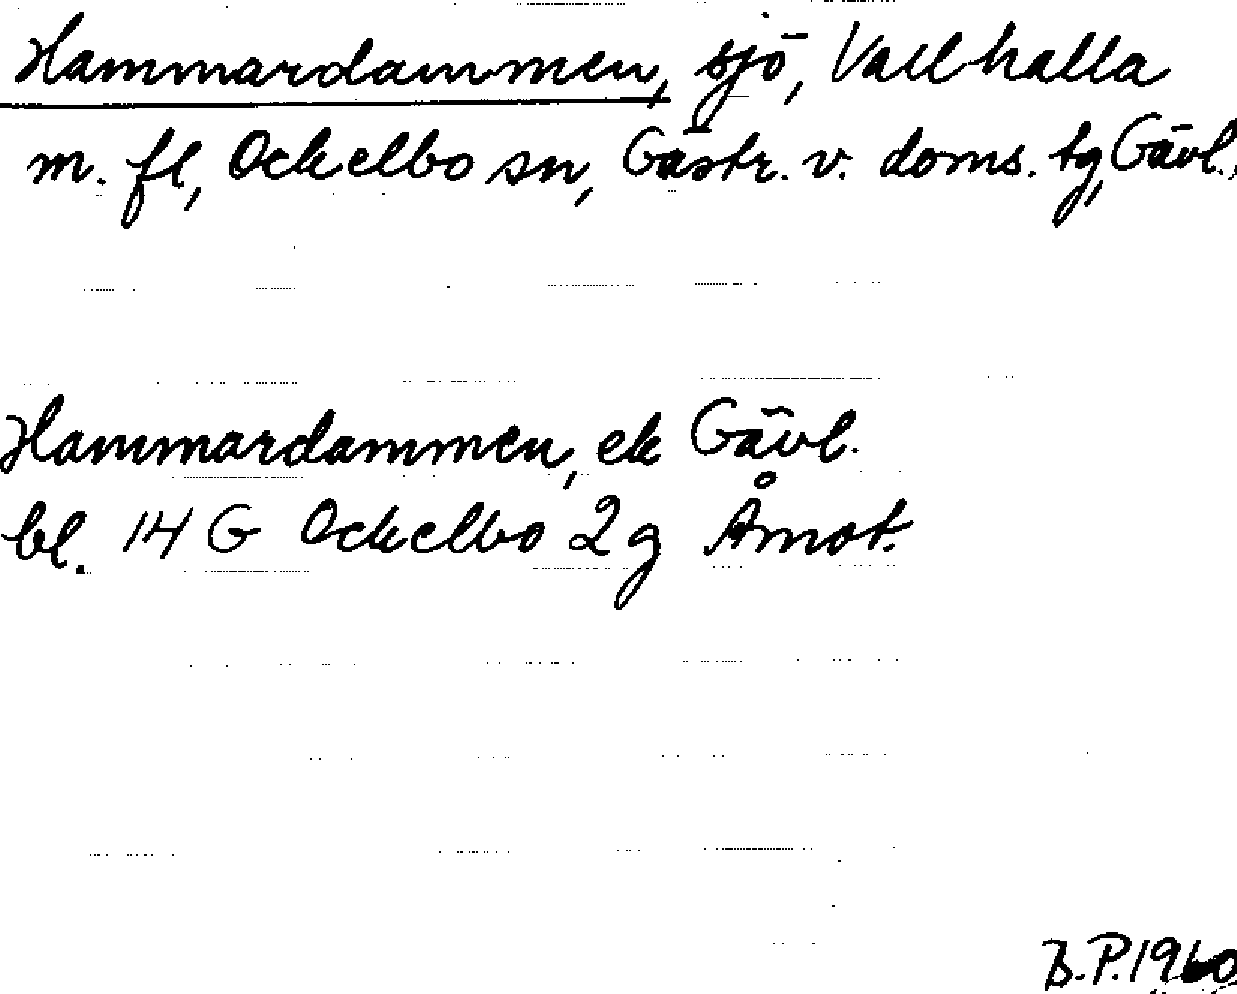 Hammardammen, sjö, Vallhalla
m. fl, Ockelbo sn, Gästr. v. doms. tg, Gävl.,
Hammardammen, ek Gävl.
bl. 14 G Ockelbo 2g Åmot.
B.P. 1960